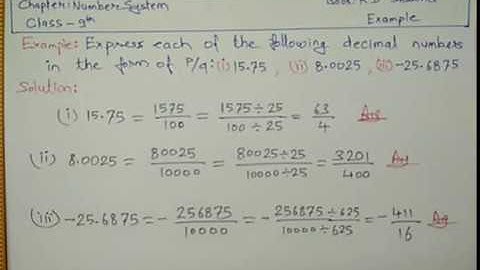 Chapter: Number System
Class - 9th
Example
Example: Express each of the following decimal numbers
in the form of P/q: (i) 15.75, (ii) 8.0025, (iii) -25.6875
Solution:
(i) 15.75 = 1575/100 = 1575÷25/100÷25 = 63/4 Ans
(ii) 8.0025 = 80025/10000 = 80025÷25/10000÷25 = 3201/400 Ans
(iii) -25.6875 = - 256875/10000 = - 256875÷625/10000÷625 = - 411/16 Ans